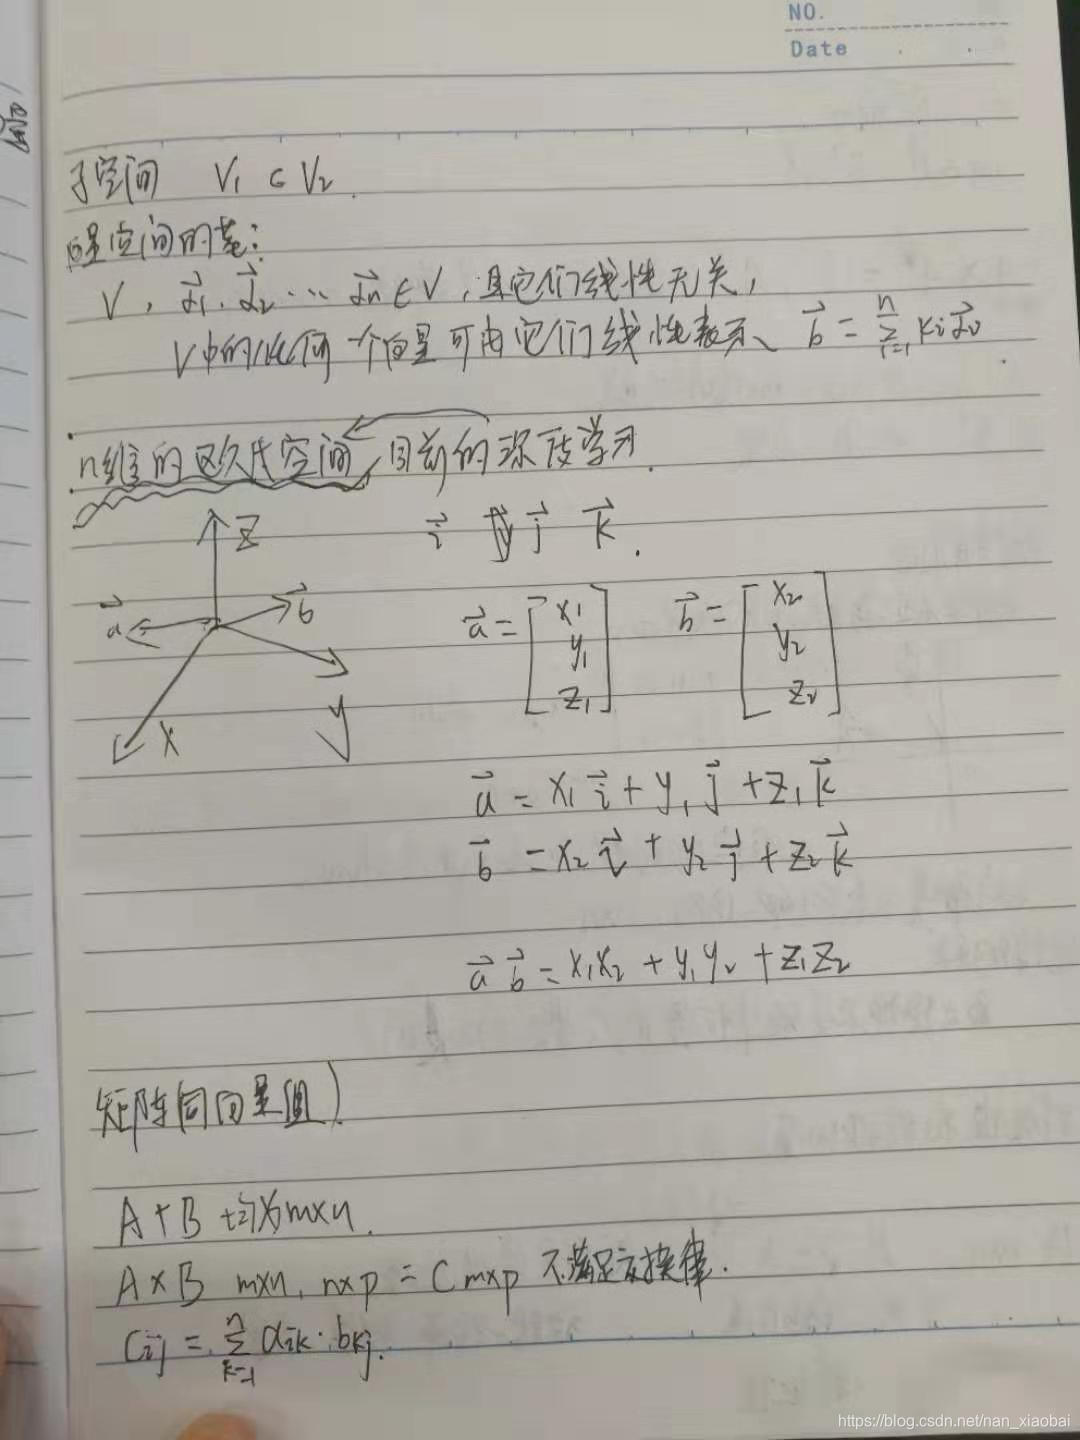 NO.
Date
子空间 V₁ ⊂ V₂.
向量空间的基:
V, α⃗₁, α⃗₂ ⋯ α⃗n ∈ V, 且它们线性无关,
V中的任何一个向量可由它们线性表示、 b⃗ = Σⁿᵢ₌₁ kᵢα⃗ᵢ.
n维的欧氏空间 目前的深度学习.
i⃗ j⃗ k⃗.
Z
a⃗ b⃗
a⃗ = [x₁ y₁ z₁] b⃗ = [x₂ y₂ z₂]
X y
a⃗ = x₁i⃗ + y₁j⃗ + z₁k⃗
b⃗ = x₂i⃗ + y₂j⃗ + z₂k⃗
a⃗ b⃗ = x₁x₂ + y₁y₂ + z₁z₂
矩阵(同向量组)
A+B 均为m×n.
A×B m×n, n×p = Cm×p 不满足交换律.
Cij = Σⁿₖ₌₁ aik·bkj.
https://blog.csdn.net/nan_xiaobai